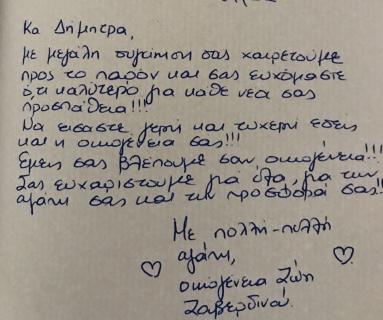 Κα Δήμητρα,
με μεγάλη συγκίνηση σας χαιρετούμε
προς το παρόν και σας ευχόμαστε
ότι καλύτερο για κάθε νέα σας
προσπάθεια!!!
Να είσαστε γερή και τυχερή εσείς
και η οικογένεια σας!!!
Εμείς σας βλέπουμε σαν οικογένεια!!!
Σας ευχαριστούμε για όλα, για την
αγάπη σας και την προσφορά σας!!
Με πολλή-πολλή
αγάπη,
οικογένεια Ζώη
Ζαβερδινού.